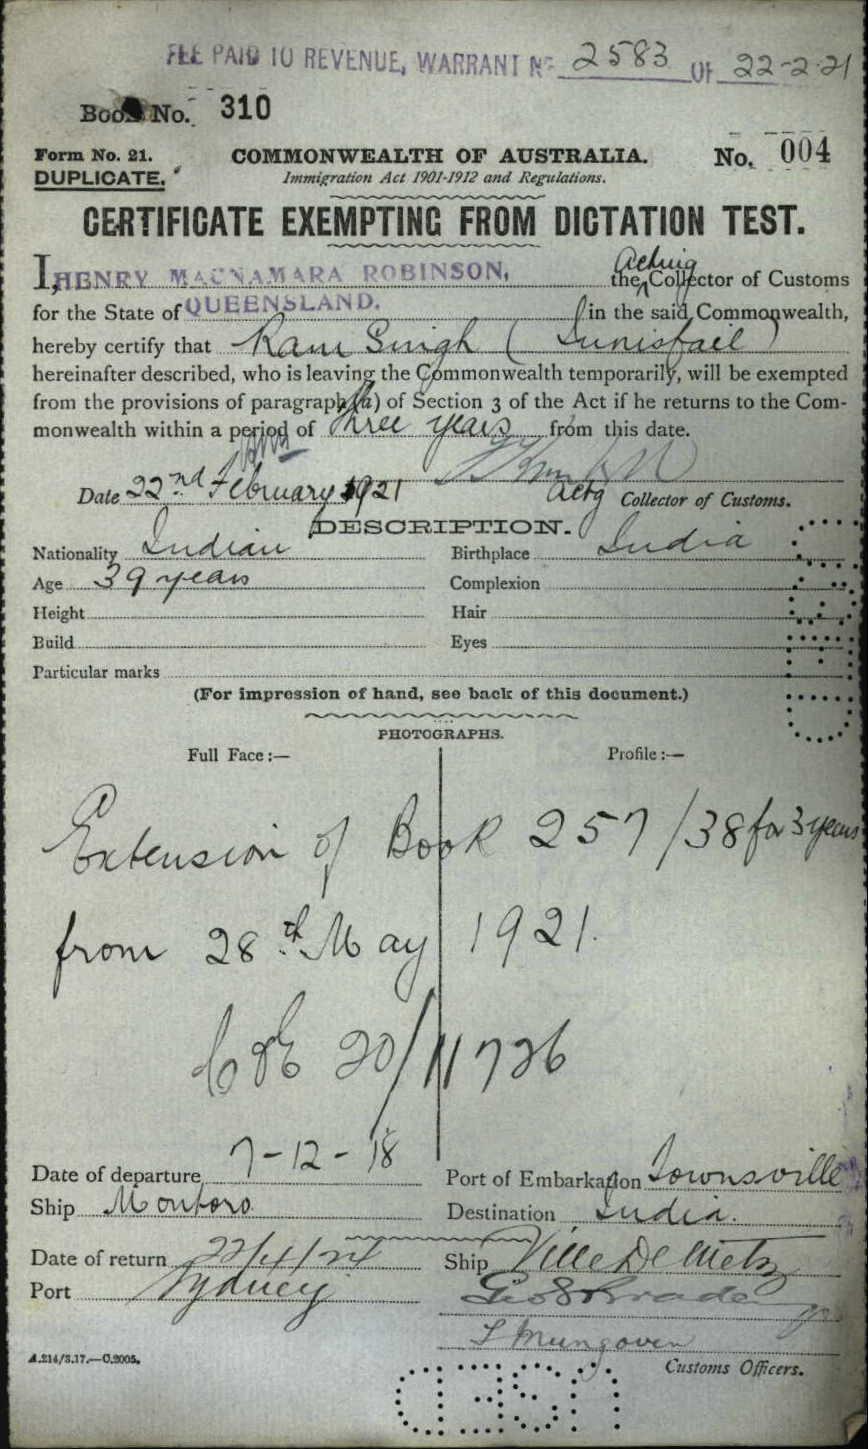 FEE PAID TO REVENUE, WARRANT No 2583 OF 22-2-21
Book No. 310
Form No. 21. COMMONWEALTH OF AUSTRALIA. No. 004
DUPLICATE. Immigration Act 1901-1912 and Regulations.
CERTIFICATE EXEMPTING FROM DICTATION TEST.
I, HENRY MACNAMARA ROBINSON, the Acting Collector of Customs
for the State of QUEENSLAND. in the said Commonwealth,
hereby certify that Ram Singh (Innisfail)
hereinafter described, who is leaving the Commonwealth temporarily, will be exempted
from the provisions of paragraph (a) of Section 3 of the Act if he returns to the Com-
monwealth within a period of three years from this date.
Date 22nd February 1921 Actg Collector of Customs.
DESCRIPTION.
Nationality Indian Birthplace India
Age 39 years Complexion
Height Hair
Build Eyes
Particular marks
(For impression of hand, see back of this document.)
PHOTOGRAPHS.
Full Face:— Profile:—
Extension of Book 257/38 for 3 years
from 28th May 1921.
C&E 20/11726
Date of departure 7-12-18 Port of Embarkation Townsville
Ship Montoro Destination India.
Date of return 22/4/24 Ship Ville De Metz
Port Sydney
Customs Officers.
A.214/3.17.—C.2005.